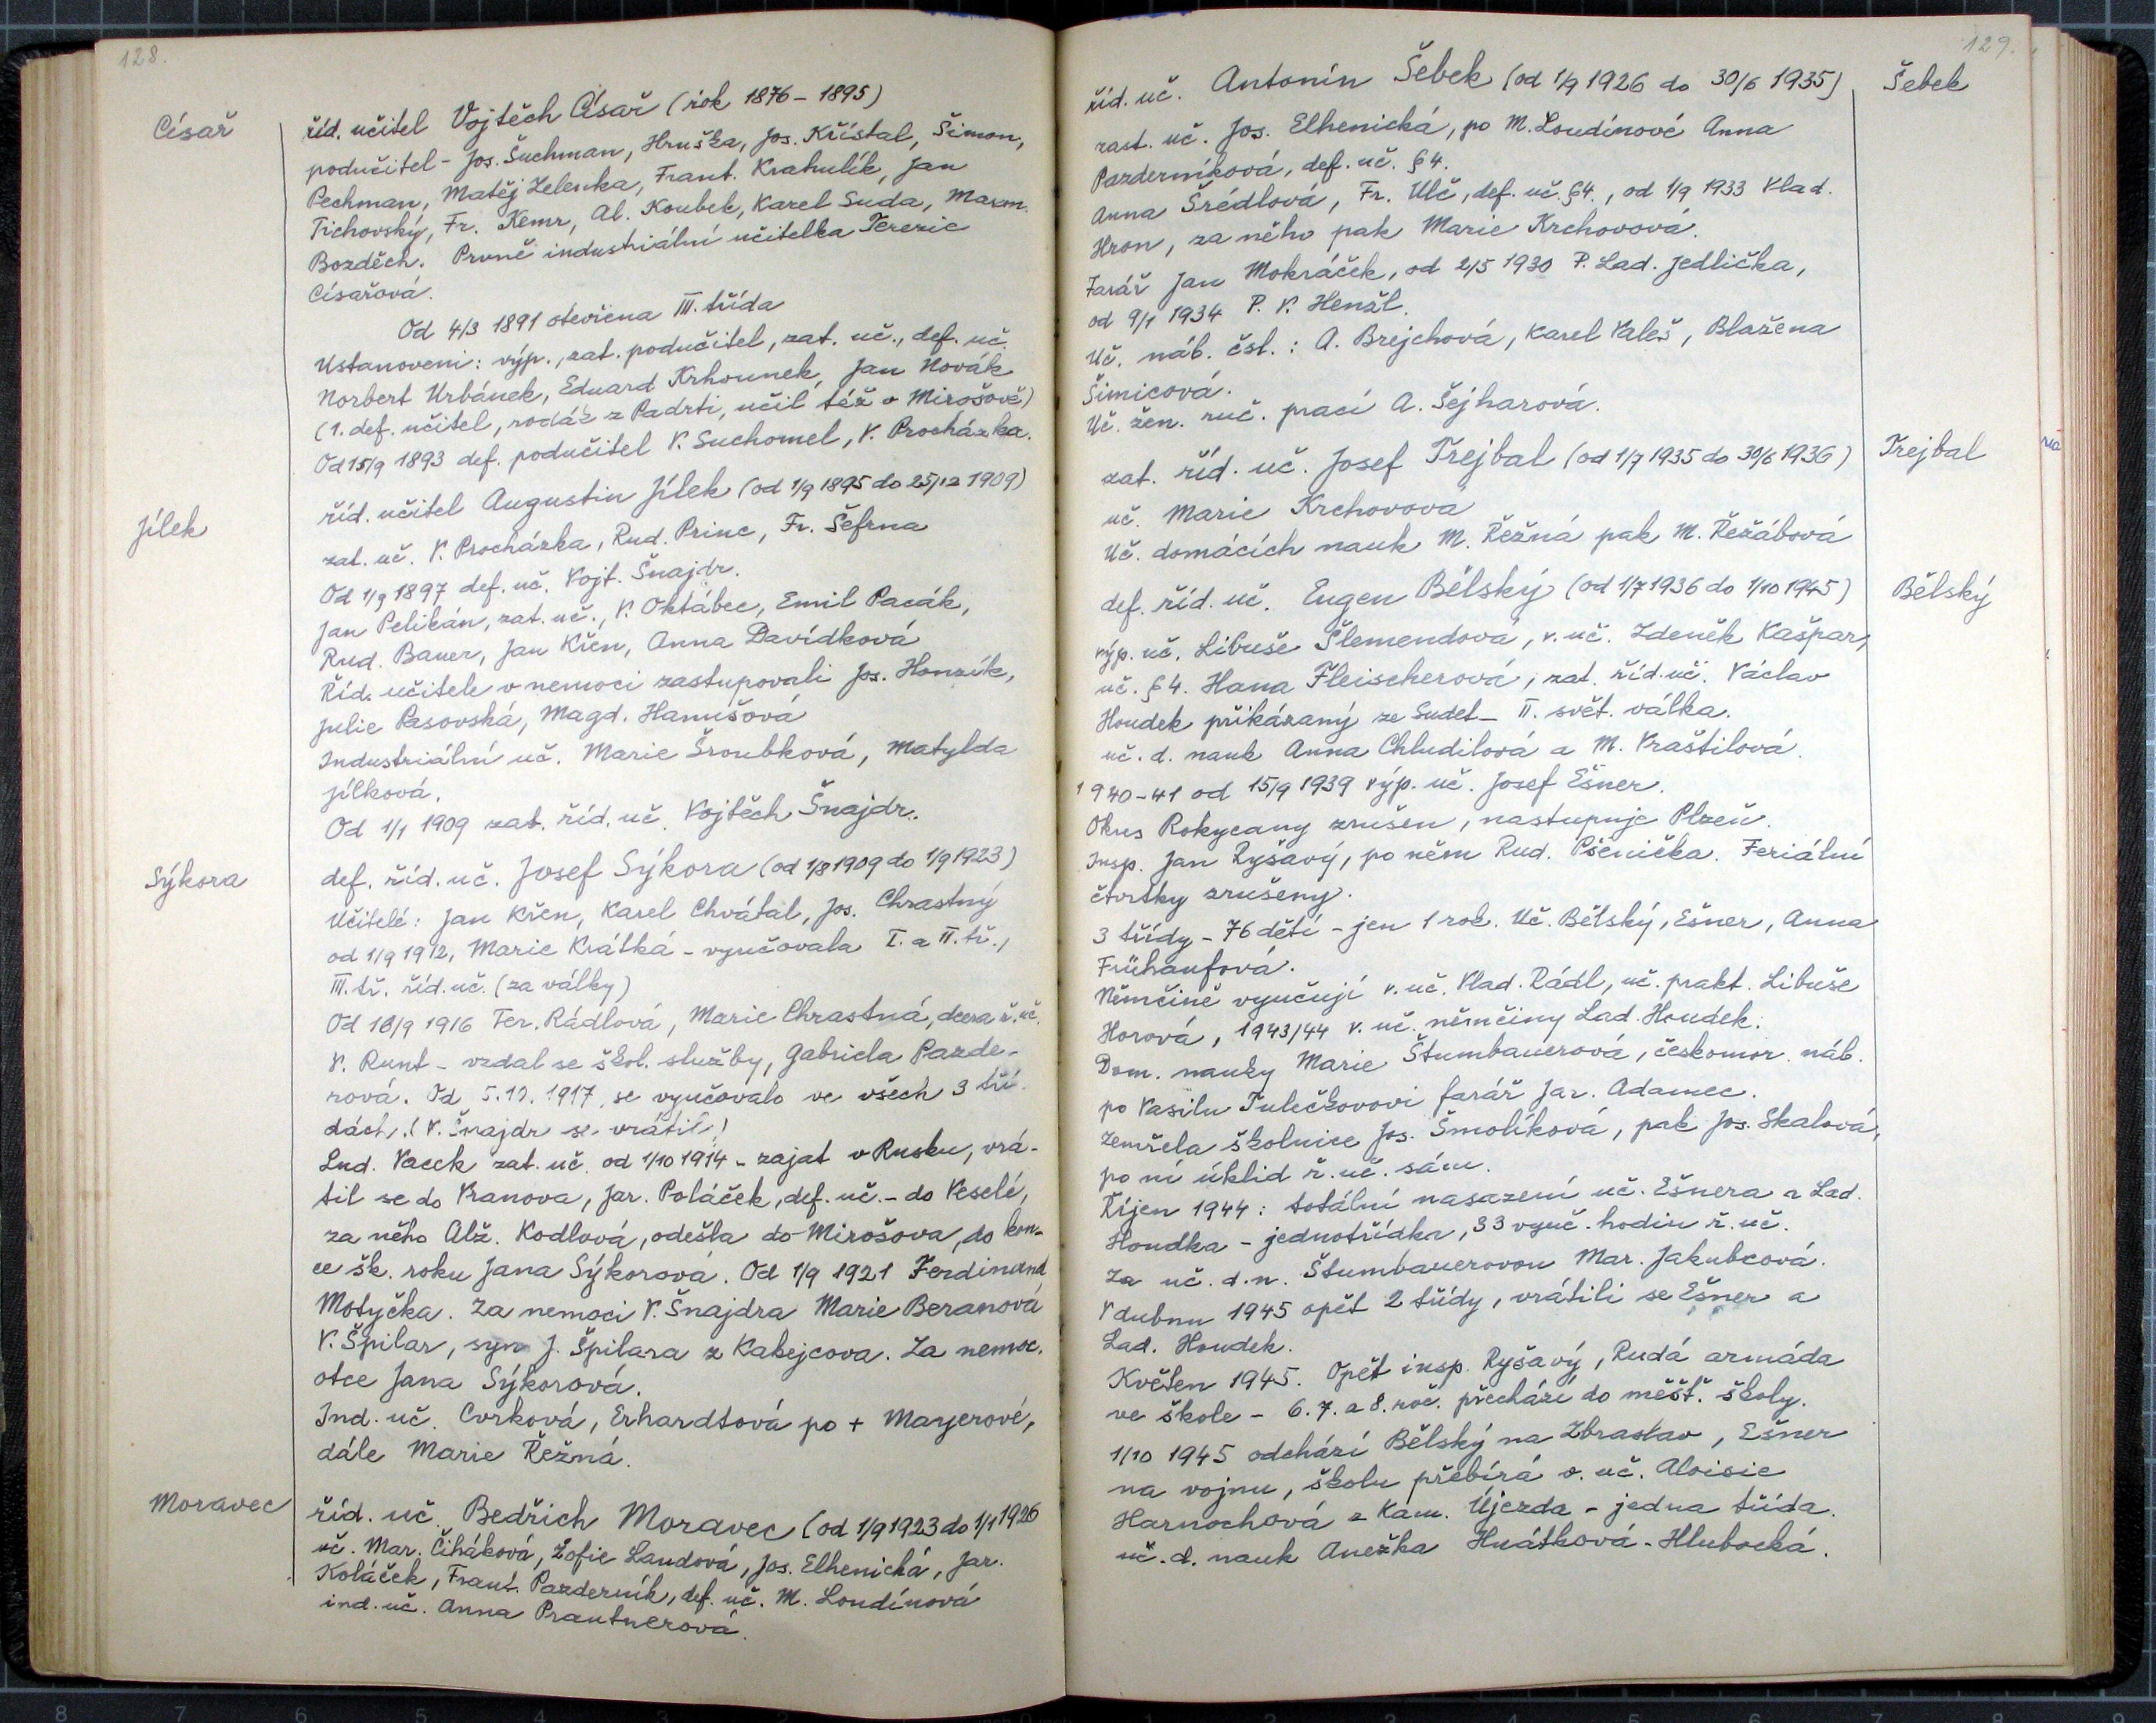 128.
Císař
říd. učitel Vojtěch Císař (rok 1876 - 1895)
podučitel - Jos. Šuchman, Hruška, Jos. Křístal, Šimon,
Pechman, Matěj Zelenka, Frant. Krahulík, Jan
Tichovský, Fr. Kemr, Al. Koubek, Karel Suda, Maxm.
Bozděch. Prvně industriální učitelka Terezie
Císařová.
Od 4/3 1891 otevřena III. třída
Ustanoveni: výp., zat. podučitel, zat. uč., def. uč.
Norbert Urbánek, Eduard Krhounek, Jan Novák
(1. def. učitel, rodák z Padrti, učil též v Mirošově)
Od 15/9 1893 def. podučitel V. Suchomel, V. Procházka.
Jílek
říd. učitel Augustin Jílek (od 1/9 1895 do 25/12 1909)
zat. uč. V. Procházka, Rud. Princ, Fr. Šefrna
Od 1/9 1897 def. uč. Vojt. Šnajdr.
Jan Pelikán, zat. uč., V. Oktábec, Emil Pacák,
Rud. Bauer, Jan Křen, Anna Davídková
Říd. učitele v nemoci zastupovali Jos. Honzík,
Julie Pasovská, Magd. Hanušová
Industriální uč. Marie Šroubková, Matylda
Jílková.
Od 1/1 1909 zat. říd. uč. Vojtěch Šnajdr.
Sýkora
def. říd. uč. Josef Sýkora (od 1/8 1909 do 1/9 1923)
Učitelé: Jan Křen, Karel Chvátal, Jos. Chrastný
od 1/9 1912, Marie Krátká - vyučovala I. a II. tř.,
III. tř. říd. uč. (za války)
Od 16/9 1916 Ter. Rádlová, Marie Chrastná, dcera ř. uč.
V. Runt - vzdal se škol. služby, Gabriela Pazde-
rová. Od 5.12. 1917 se vyučovalo ve všech 3 tří-
dách. (V. Šnajdr se vrátil)
Lud. Vacek zat. uč. od 1/10 1914 - zajat v Rusku, vrá-
til se do Vranova, Jar. Poláček, def. uč. - do Veselé,
za něho Alž. Kodlová, odešla do Mirošova, do kon-
ce šk. roku Jana Sýkorová. Od 1/9 1921 Ferdinand
Motyčka. Za nemoci V. Šnajdra Marie Beranová
V. Špilar, syn J. Špilara z Kakejcova. Za nemoc.
otce Jana Sýkorová.
Ind. uč. Cvrková, Erhardtová po + Mayerové,
dále Marie Řežná.
Moravec
říd. uč. Bedřich Moravec (od 1/9 1923 do 1/1 1926
uč. Mar. Čiháková, Žofie Landová, Jos. Elhenická, Jar.
Koláček, Frant. Pazderník, def. uč. M. Loudínová
ind. uč. Anna Prantnerová.
129.
Šebek
říd. uč. Antonín Šebek (od 1/9 1926 do 30/6 1935)
zast. uč. Jos. Elhenická, po M. Loudínové Anna
Pazderníková, def. uč. §4.
Anna Šrédlová, Fr. Ulč, def. uč. §4., od 1/9 1933 Vlad.
Hron, za něho pak Marie Krchovová.
Farář Jan Mokráček, od 2/5 1930 P. Lad. Jedlička,
od 9/1 1934 P. V. Henžl.
Uč. náb. čsl.: A. Brejchová, Karel Valeš, Blažena
Šimicová.
Uč. žen. ruč. prací A. Šejharová.
Trejbal
zat. říd. uč. Josef Trejbal (od 1/7 1935 do 30/6 1936)
uč. Marie Krchovová
Uč. domácích nauk M. Řežná pak M. Řežábová
Bělský
def. říd. uč. Eugen Bělský (od 1/7 1936 do 1/10 1945)
výp. uč. Libuše Šlemendová, v. uč. Zdeněk Kašpar,
uč. §4. Hana Fleischerová, zat. říd. uč. Václav
Houdek přikázaný ze Sudet - II. svět. válka.
uč. d. nauk Anna Chludilová a M. Vraštilová.
1940-41 od 15/9 1939 výp. uč. Josef Ešner.
Okres Rokycany zrušen, nastupuje Plzeň.
Insp. Jan Ryšavý, po něm Rud. Pšenička. Feriální
čtvrtky zrušeny.
3 třídy - 76 dětí - jen 1 rok. Uč. Bělský, Ešner, Anna
Frühaufová.
Němčině vyučují v. uč. Vlad. Rádl, uč. prakt. Libuše
Horová, 1943/44 v. uč. němčiny Lad. Houdek.
Dom. nauky Marie Štumbauerová, českomor. náb.
po Vasilu Tulečkovovi farář Jar. Adamec.
Zemřela školnice Jos. Šmolíková, pak Jos. Skalová,
po ní úklid ř. uč. sám.
Říjen 1944: totální nasazení uč. Ešnera a Lad.
Houdka - jednotřídka, 33 vyuč. hodin ř. uč.
Za uč. d. n. Štumbauerovou Mar. Jakubcová.
V dubnu 1945 opět 2 třídy, vrátili se Ešner a
Lad. Houdek.
Květen 1945. Opět insp. Ryšavý, Rudá armáda
ve škole - 6. 7. a 8. roč. přechází do měšť. školy.
1/10 1945 odchází Bělský na Zbraslav, Ešner
na vojnu, školu přebírá v. uč. Aloisie
Harnochová z Kam. Újezda - jedna třída.
uč. d. nauk Anežka Hnátková - Hlubocká.